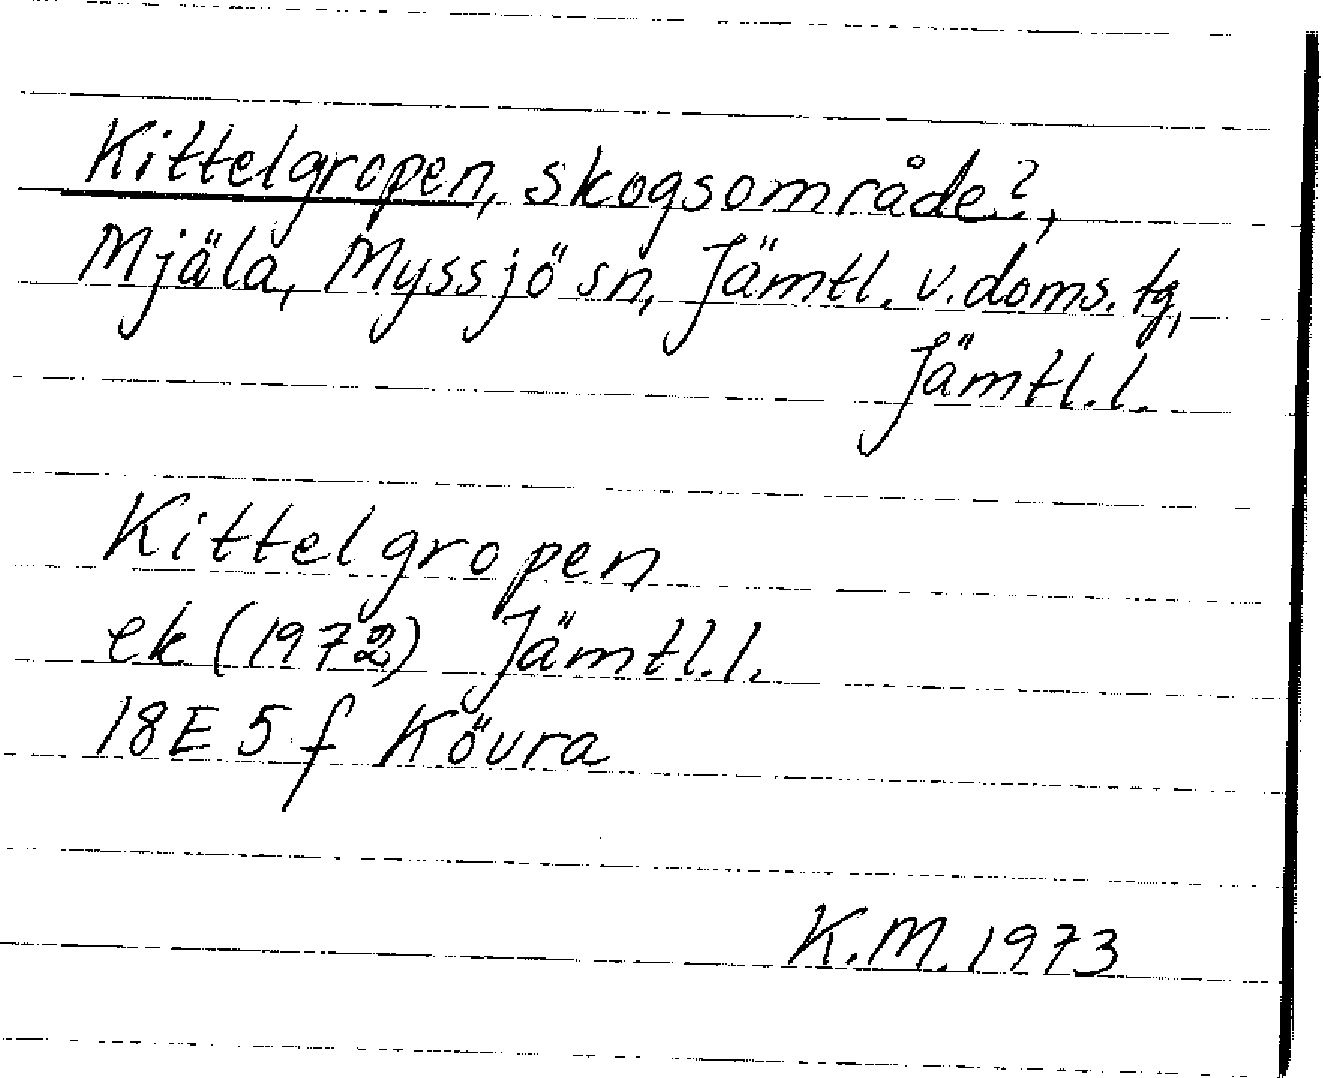 Kittelgropen, skogsområde?,
Mjäla, Myssjö sn, Jämtl. v. doms. tg,
Jämtl. l.
Kittelgropen
ek (1972) Jämtl. l.
18E 5 f Kövra
K.M. 1973